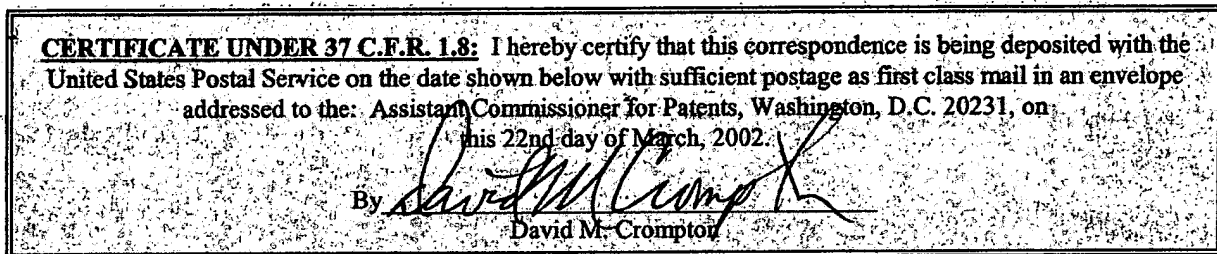 CERTIFICATE UNDER 37 C.F.R. 1.8: I hereby certify that this correspondence is being deposited with the
United States Postal Service on the date shown below with sufficient postage as first class mail in an envelope
addressed to the: Assistant Commissioner for Patents, Washington, D.C. 20231, on
this 22nd day of March, 2002.
By David M Crompton
David M. Crompton